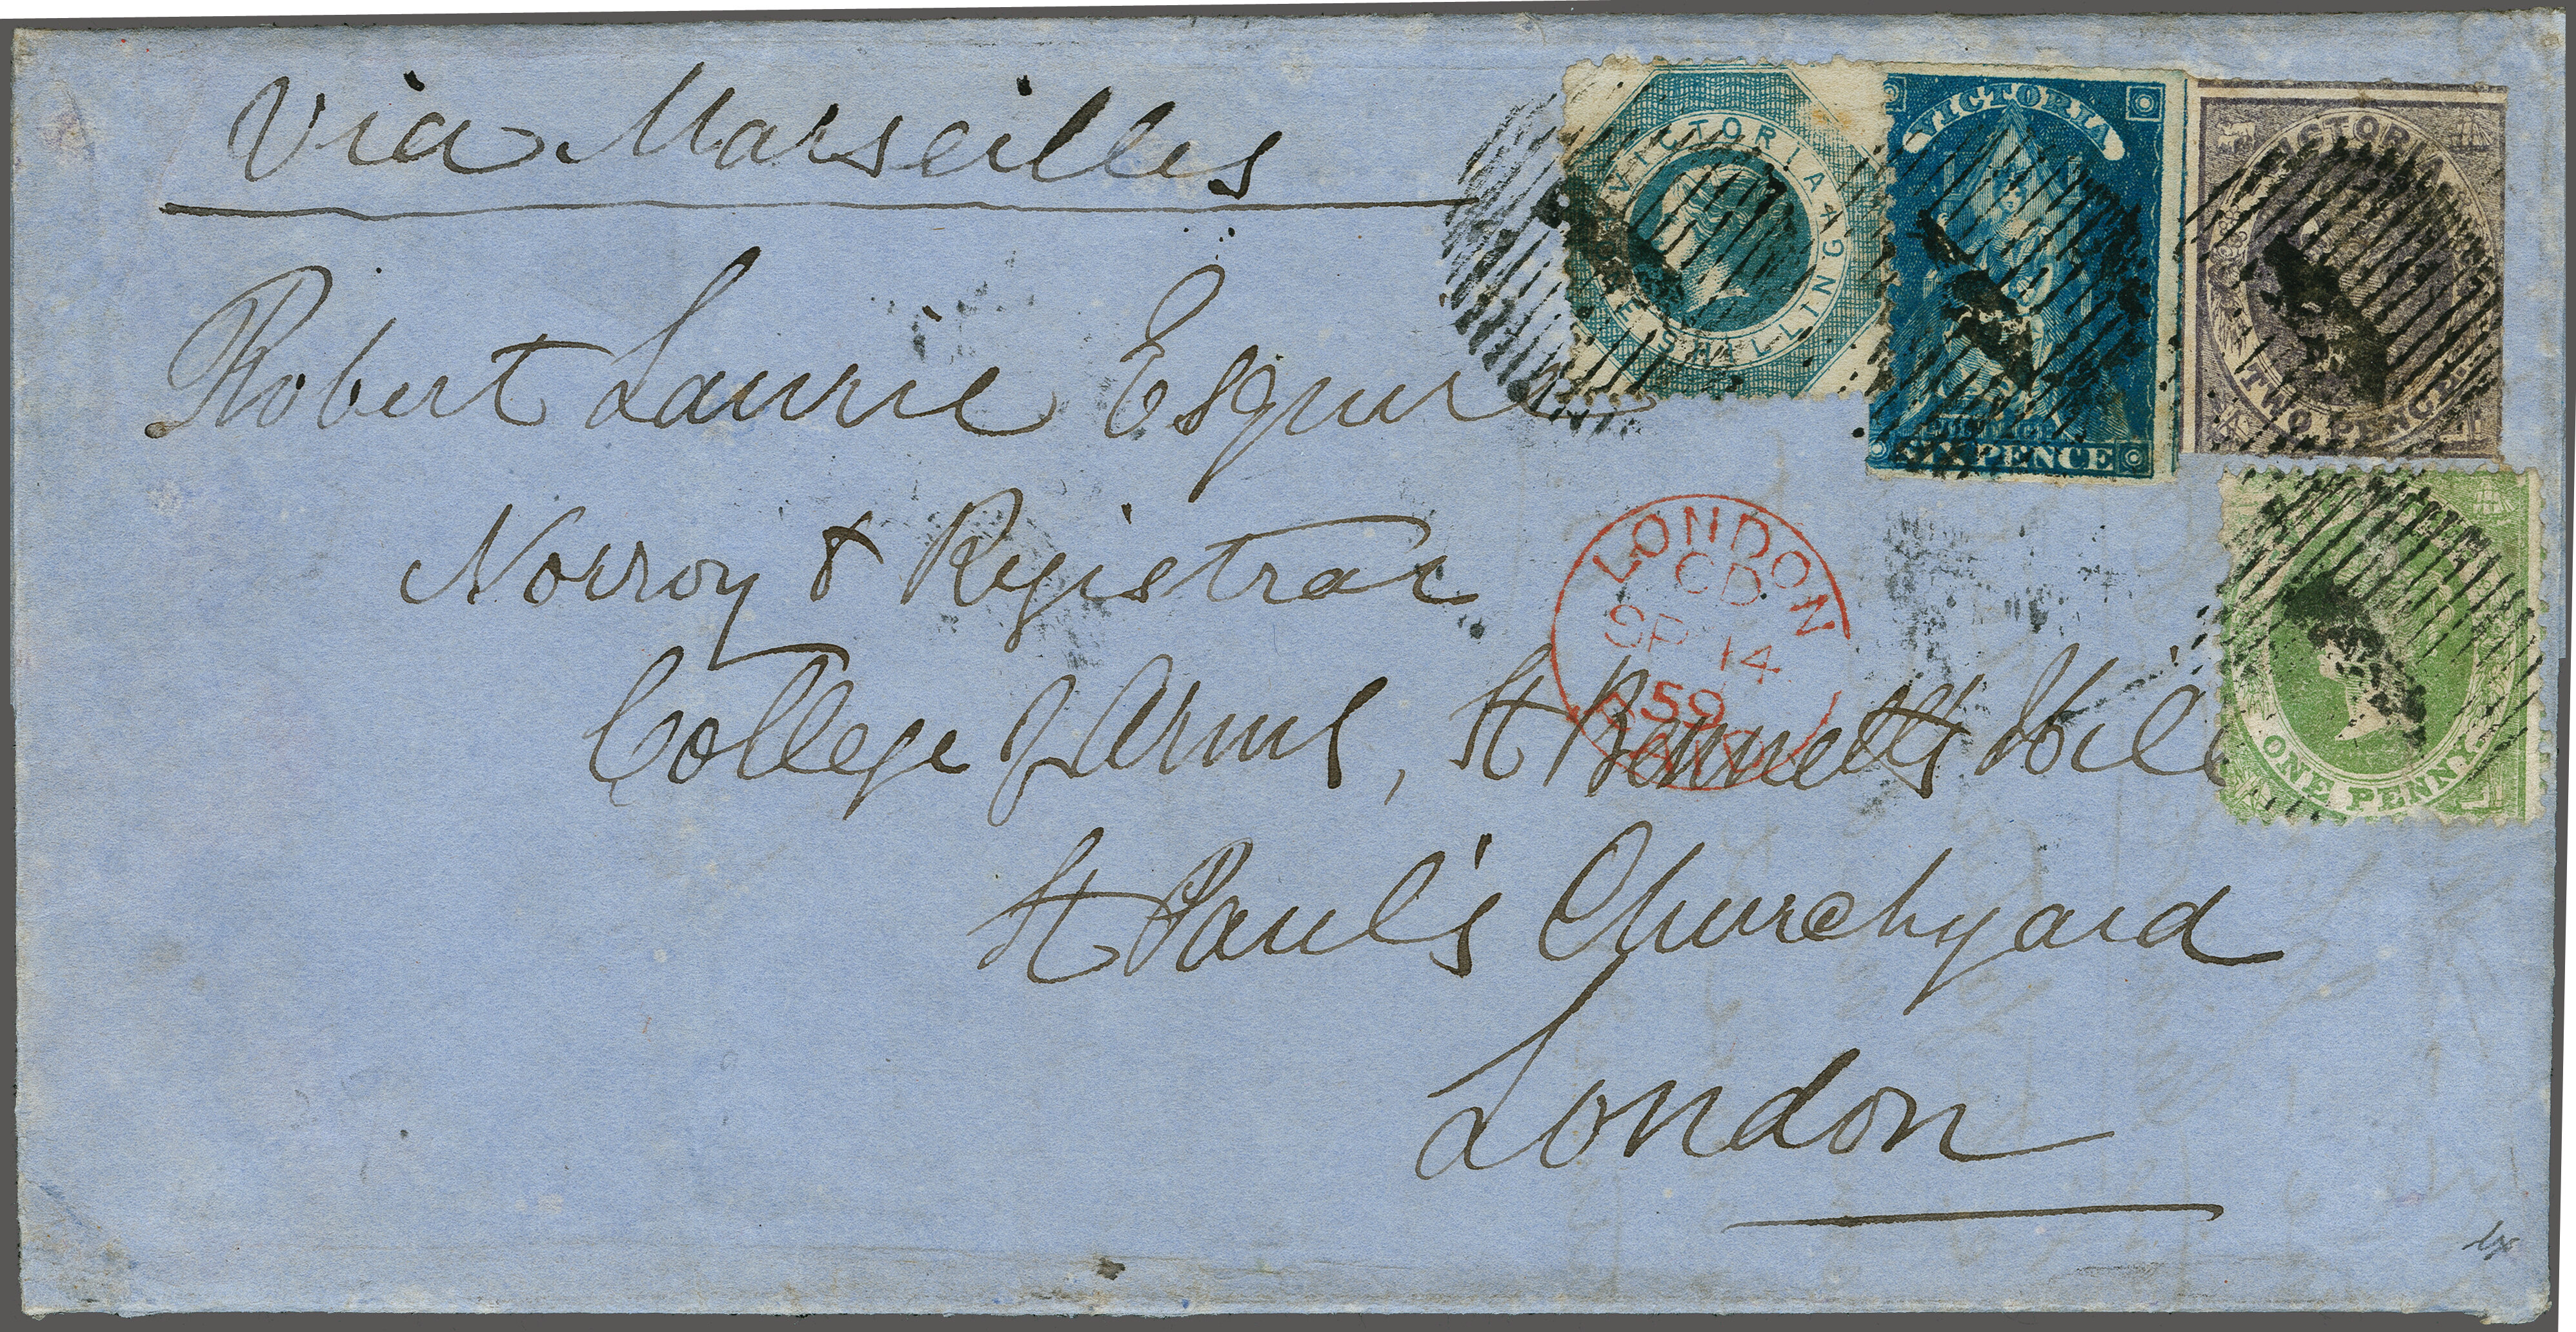 Via Marseilles
VICTORIA
ONE SHILLING
VICTORIA
SIX PENCE
VICTORIA
TWO PENCE
Robert Laurie Esquire
Norroy & Registrar
LONDON
CD
SP 14
59
PAID
College of Arms, St Bennetts Hill
ONE PENNY
St Paul's Churchyard
London